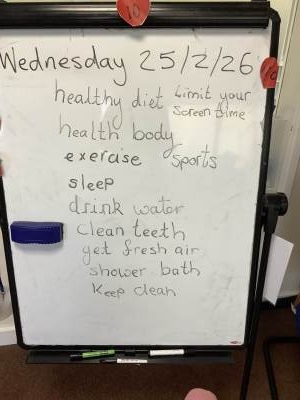 10
Wednesday 25/2/26
healthy diet Limit your
screen time
health body
exercise sports
sleep
drink water
clean teeth
get fresh air
shower bath
keep clean